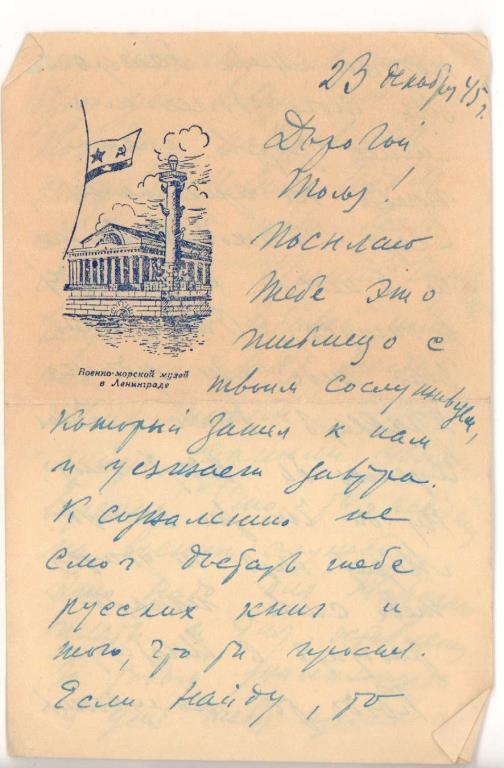 23 декабря 45 г.
Дорогой
Толя!
Посылаю
тебе это
письмецо с
твоим сослуживцем,
который зашел к нам
и уезжает завтра.
К сожалению не
смог достать тебе
русских книг и
того, что ты просил.
Если найду, то
Военно-морской музей
в Ленинграде